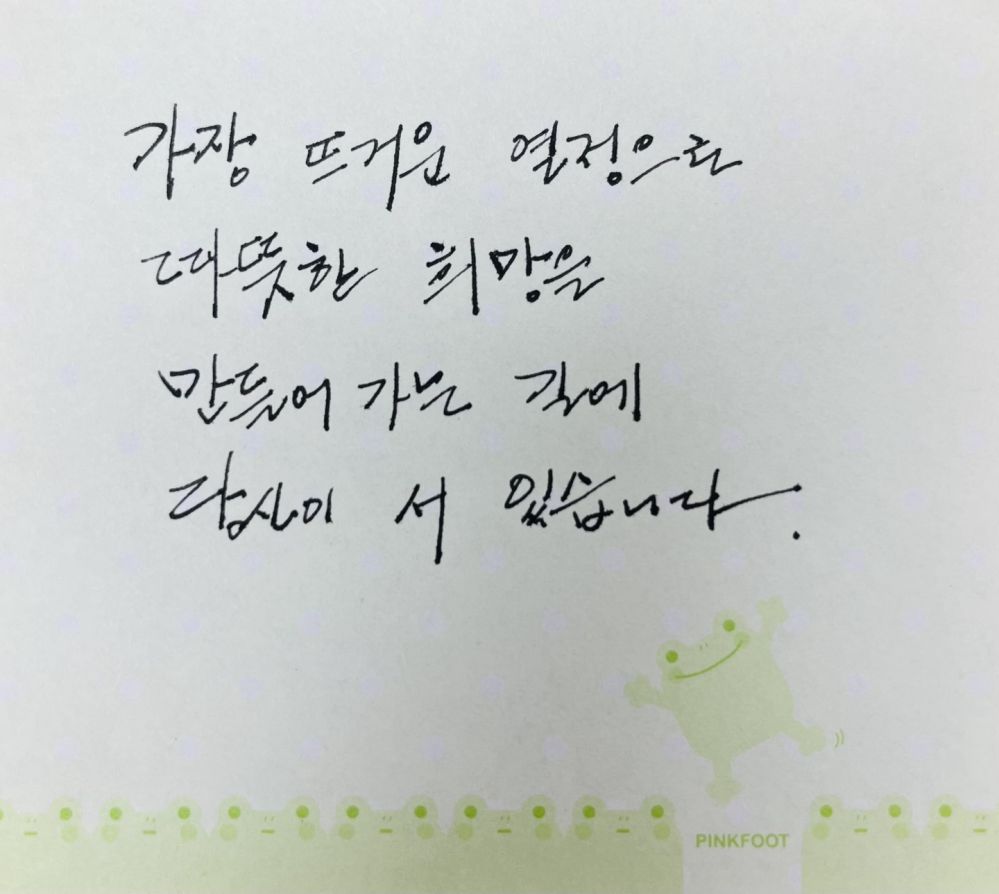 가장 뜨거운 열정으로
따뜻한 희망을
만들어 가는 길에
당신이 서 있습니다.
PINKFOOT